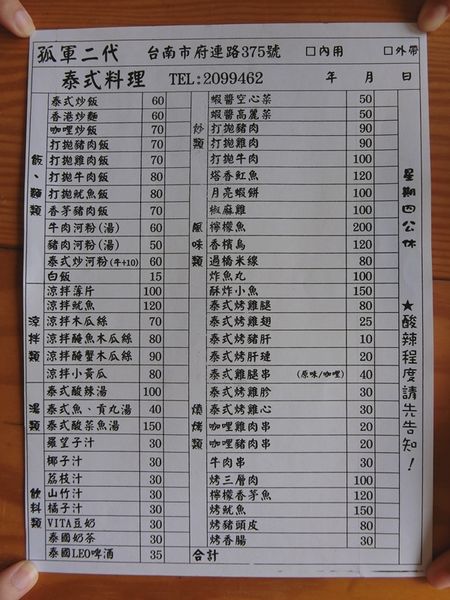 孤軍二代 台南市府連路375號 □內用 □外帶
泰式料理 TEL:2099462 年 月 日
飯、麵類
泰式炒飯 60
香港炒麵 60
咖哩炒飯 70
打拋豬肉飯 70
打拋雞肉飯 70
打拋牛肉飯 80
打拋魷魚飯 80
香茅豬肉飯 70
牛肉河粉(湯) 60
豬肉河粉(湯) 50
泰式炒河粉(牛+10) 60
白飯 15
涼拌類
涼拌薄片 100
涼拌魷魚 120
涼拌木瓜絲 70
涼拌醃魚木瓜絲 80
涼拌醃蟹木瓜絲 90
涼拌小黃瓜 80
湯類
泰式酸辣湯 100
泰式魚、貢丸湯 40
泰式酸菜魚湯 150
飲料類
羅望子汁 30
椰子汁 30
荔枝汁 30
山竹汁 30
橘子汁 30
VITA豆奶 30
泰國奶茶 30
泰國LEO啤酒 35
炒類
蝦醬空心菜 50
蝦醬高麗菜 50
打拋豬肉 90
打拋雞肉 90
打拋牛肉 100
塔香魟魚 120
風味類
月亮蝦餅 100
椒麻雞 100
檸檬魚 200
香檳鳥 120
過橋米線 80
炸魚丸 100
酥炸小魚 150
燒烤類
泰式烤雞腿 80
泰式烤雞翅 25
泰式烤豬肝 10
泰式烤肝連 20
泰式雞腿串 (原味/咖哩) 40
泰式烤雞胗 30
泰式烤雞心 30
咖哩雞肉串 20
咖哩豬肉串 20
牛肉串 30
烤三層肉 100
檸檬香茅魚 120
烤魷魚 150
烤豬頭皮 80
烤香腸 30
合計
星期四公休
★酸辣程度請先告知!